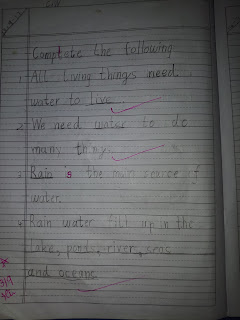 Complete the following
1. All living things need
water to live.
2. We need water to do
many things.
3. Rain is the main source of
water.
4. Rain water fill up in the
lake, pond, river, seas
and oceans